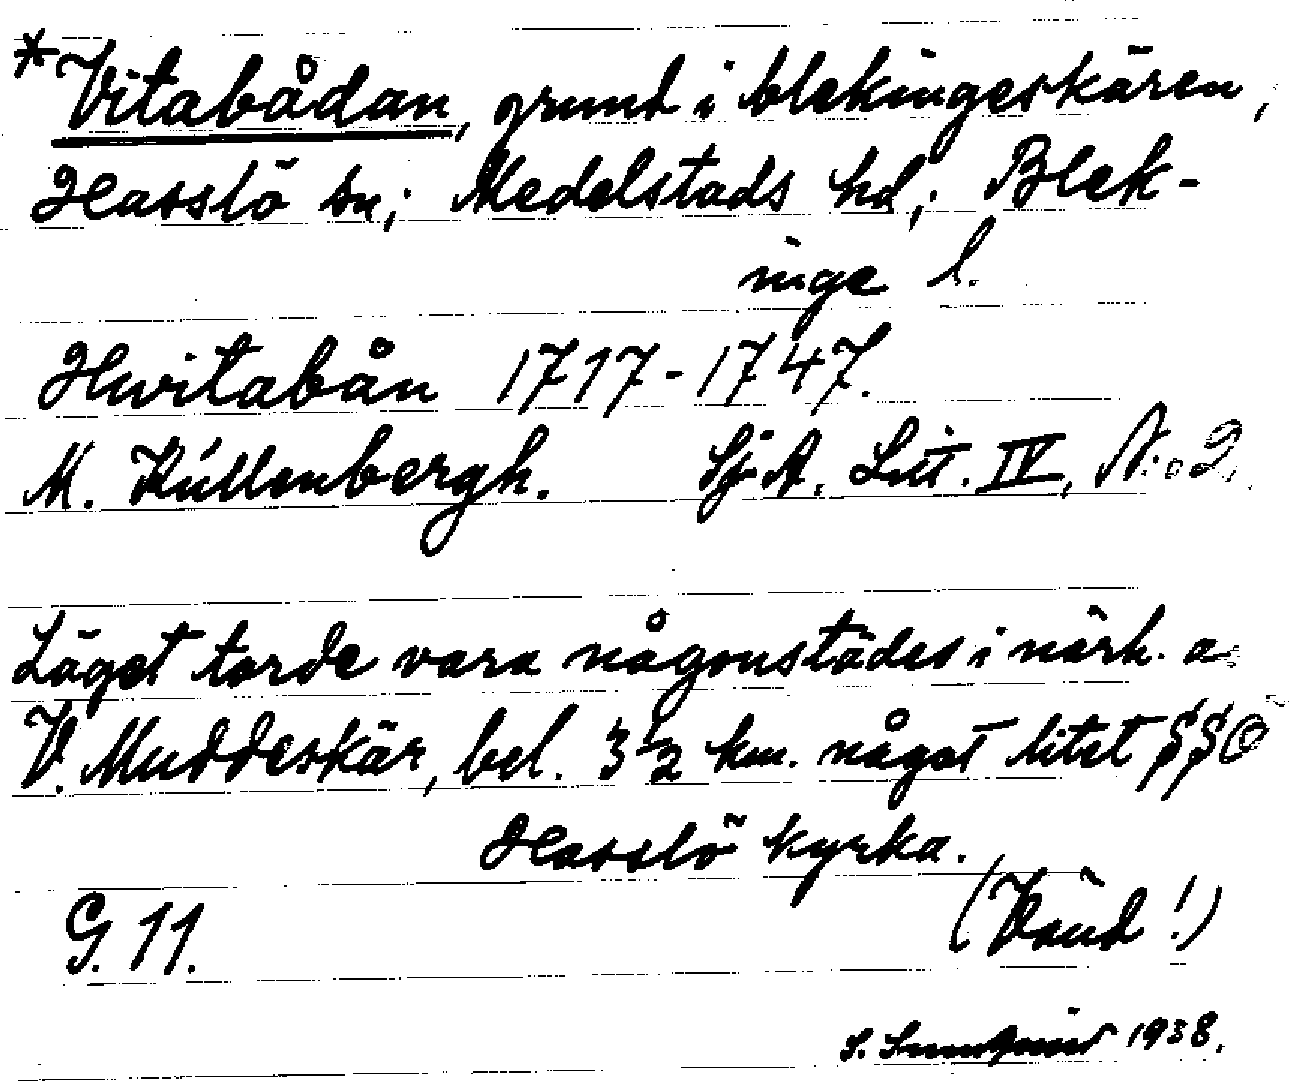 *Vitabådan, grund i blekingeskären,
Hasslö sn; Medelstads hd; Blek-
inge l.
Hwitabån 1717-1747.
M. Kúllenbergh. Sj. A. Litt. IV, N:o 2.
Läget torde vara någonstädes i närh. a
V. Muddeskär, bel. 3 1/2 km. något litet SSO
Hasslö kyrka.
G. 11. (Vänd!)
1938.